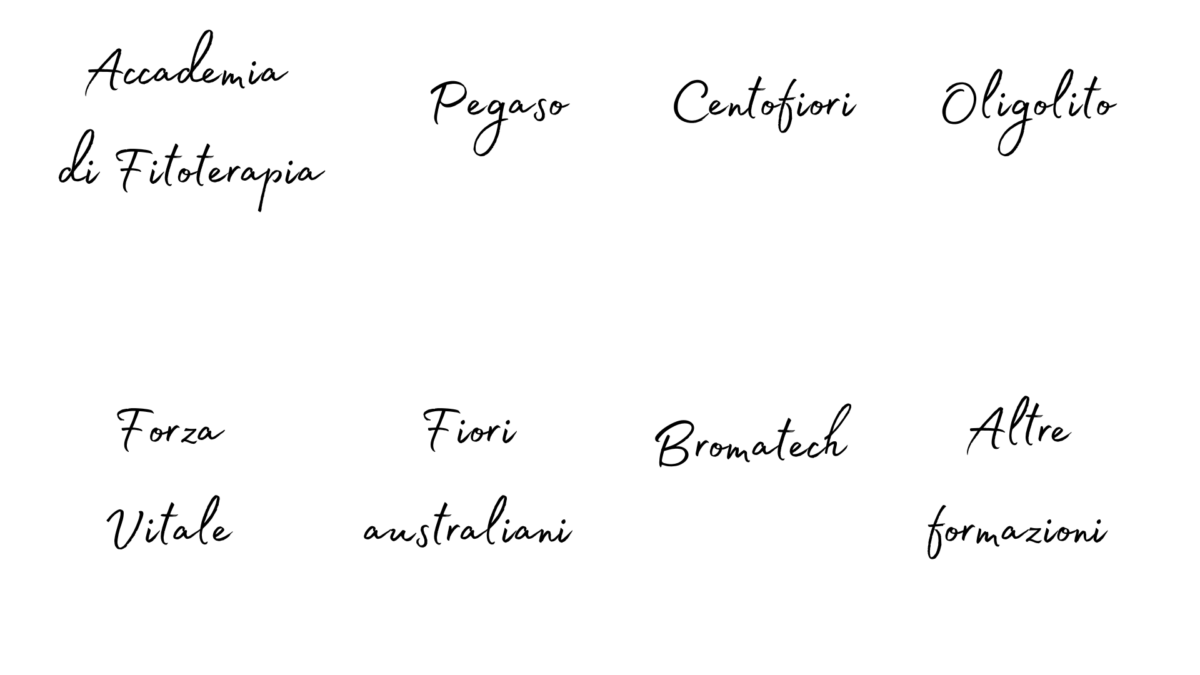 Accademia
di Fitoterapia
Pegaso
Centofiori
Oligolito
Forza
Vitale
Fiori
australiani
Bromatech
Altre
formazioni